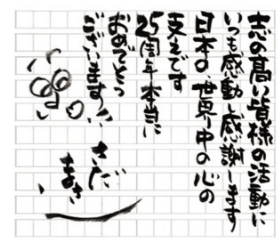 志の高い皆様の活動に
いつも感動し感謝します
日本の、世界中の心の
支えです
25周年本当に
おめでとう
ございます!
さだ
まさし